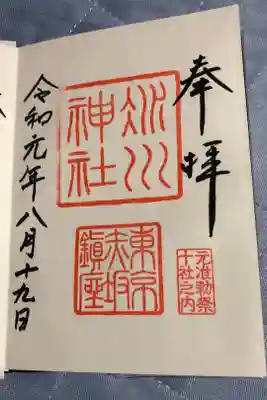 奉拝
元准勅祭
十社之内
氷川
神社
東京
赤坂
鎮座
令和元年八月十九日